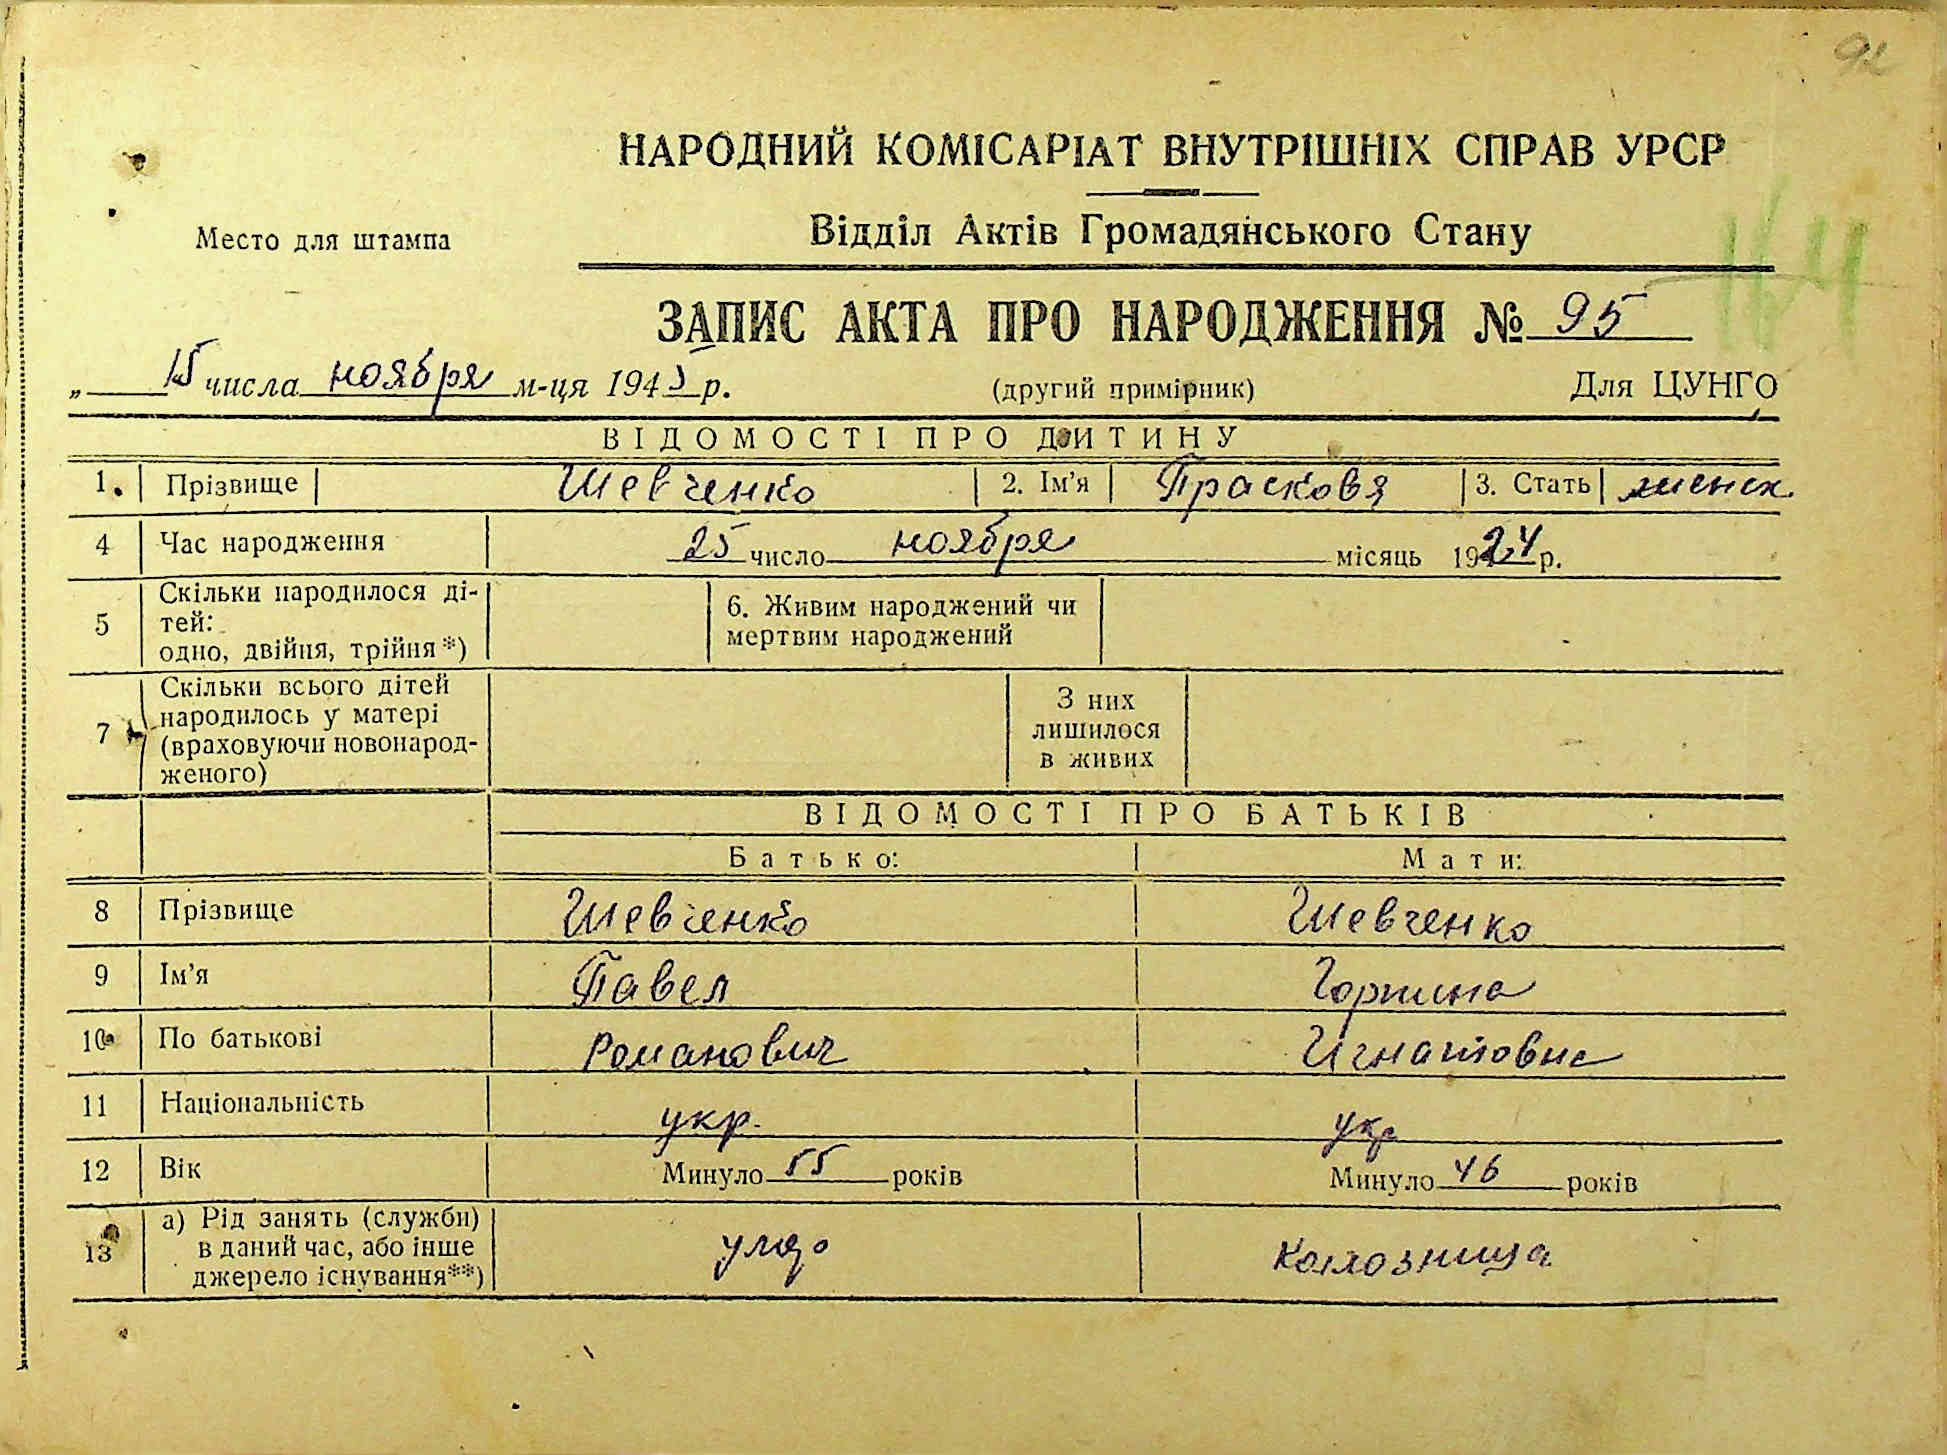 92
НАРОДНИЙ КОМІСАРІАТ ВНУТРІШНІХ СПРАВ УРСР
Место для штампа
Відділ Актів Громадянського Стану
ЗАПИС АКТА ПРО НАРОДЖЕННЯ № 95
„ 15 числа ноября м-ця 1943 р. (другий примірник) Для ЦУНГО
ВІДОМОСТІ ПРО ДИТИНУ
1. Прізвище Шевченко 2. Ім'я Прасковя 3. Стать женск
4 Час народження 25 число ноября місяць 1924 р.
5 Скільки народилося ді-
тей:
одно, двійня, трійня *)
6. Живим народжений чи
мертвим народжений
7 Скільки всього дітей
народилось у матері
(враховуючи новонарод-
женого)
З них
лишилося
в живих
ВІДОМОСТІ ПРО БАТЬКІВ
Батько: Мати:
8 Прізвище Шевченко Шевченко
9 Ім'я Павел Горпина
10 По батькові Романович Игнатовна
11 Національність укр. укр
12 Вік Минуло 55 років Минуло 46 років
13 а) Рід занять (служби)
в даний час, або інше
джерело існування**)
Колхозница